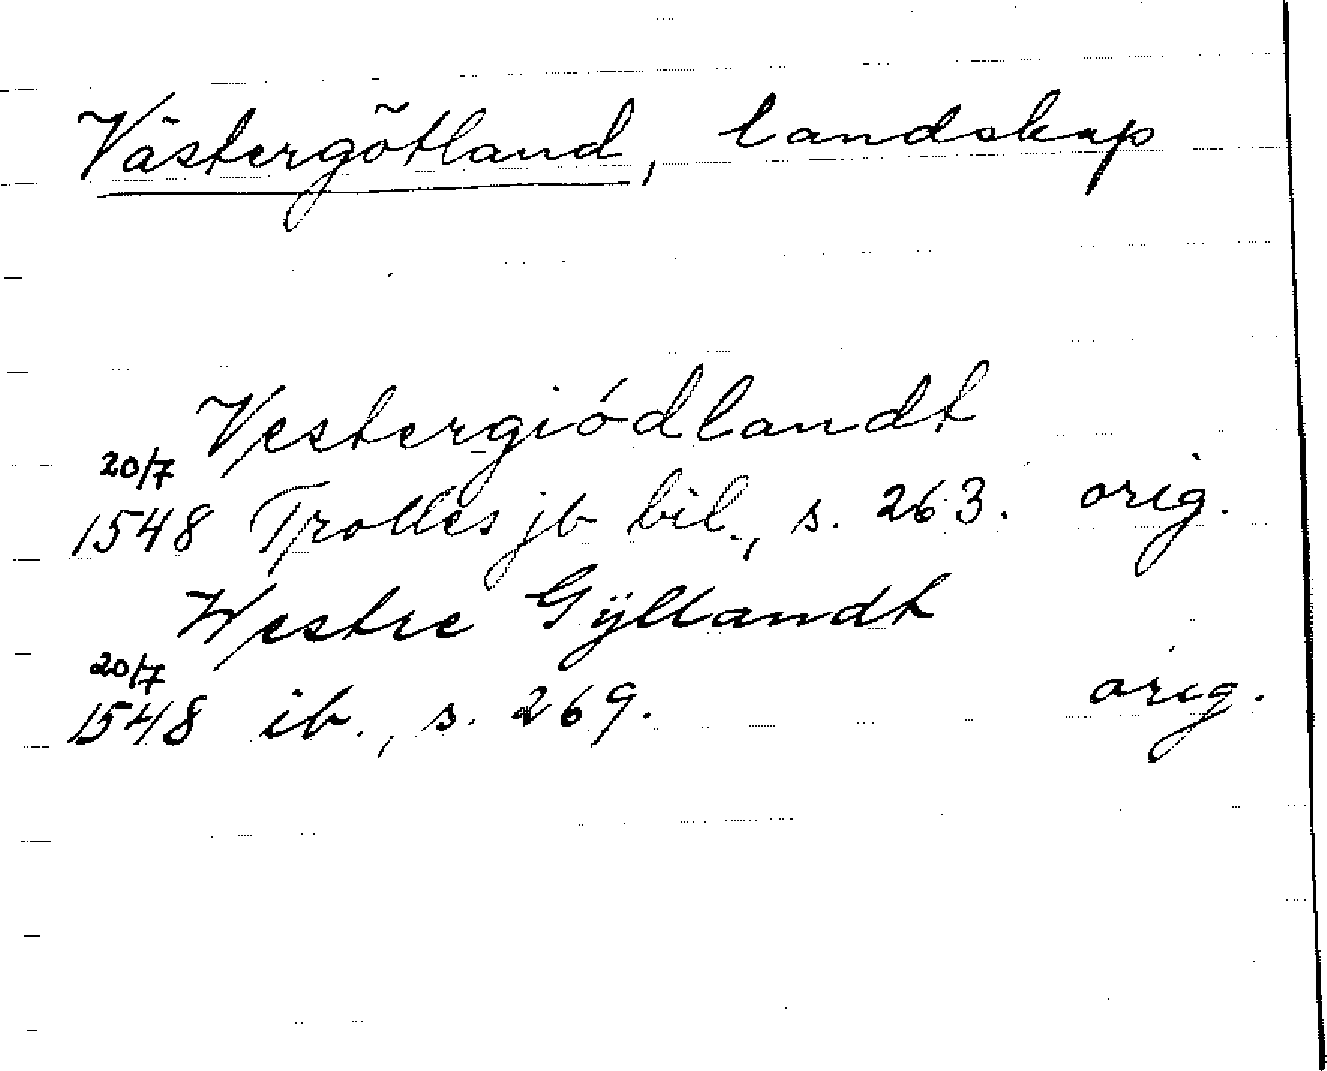 Västergötland, landskap
Vestergiódlandt
20/7
1548 Trolles jb bil., s. 263. orig.
Westre Gÿllandt
20/7
1548 ib., s. 269. orig.